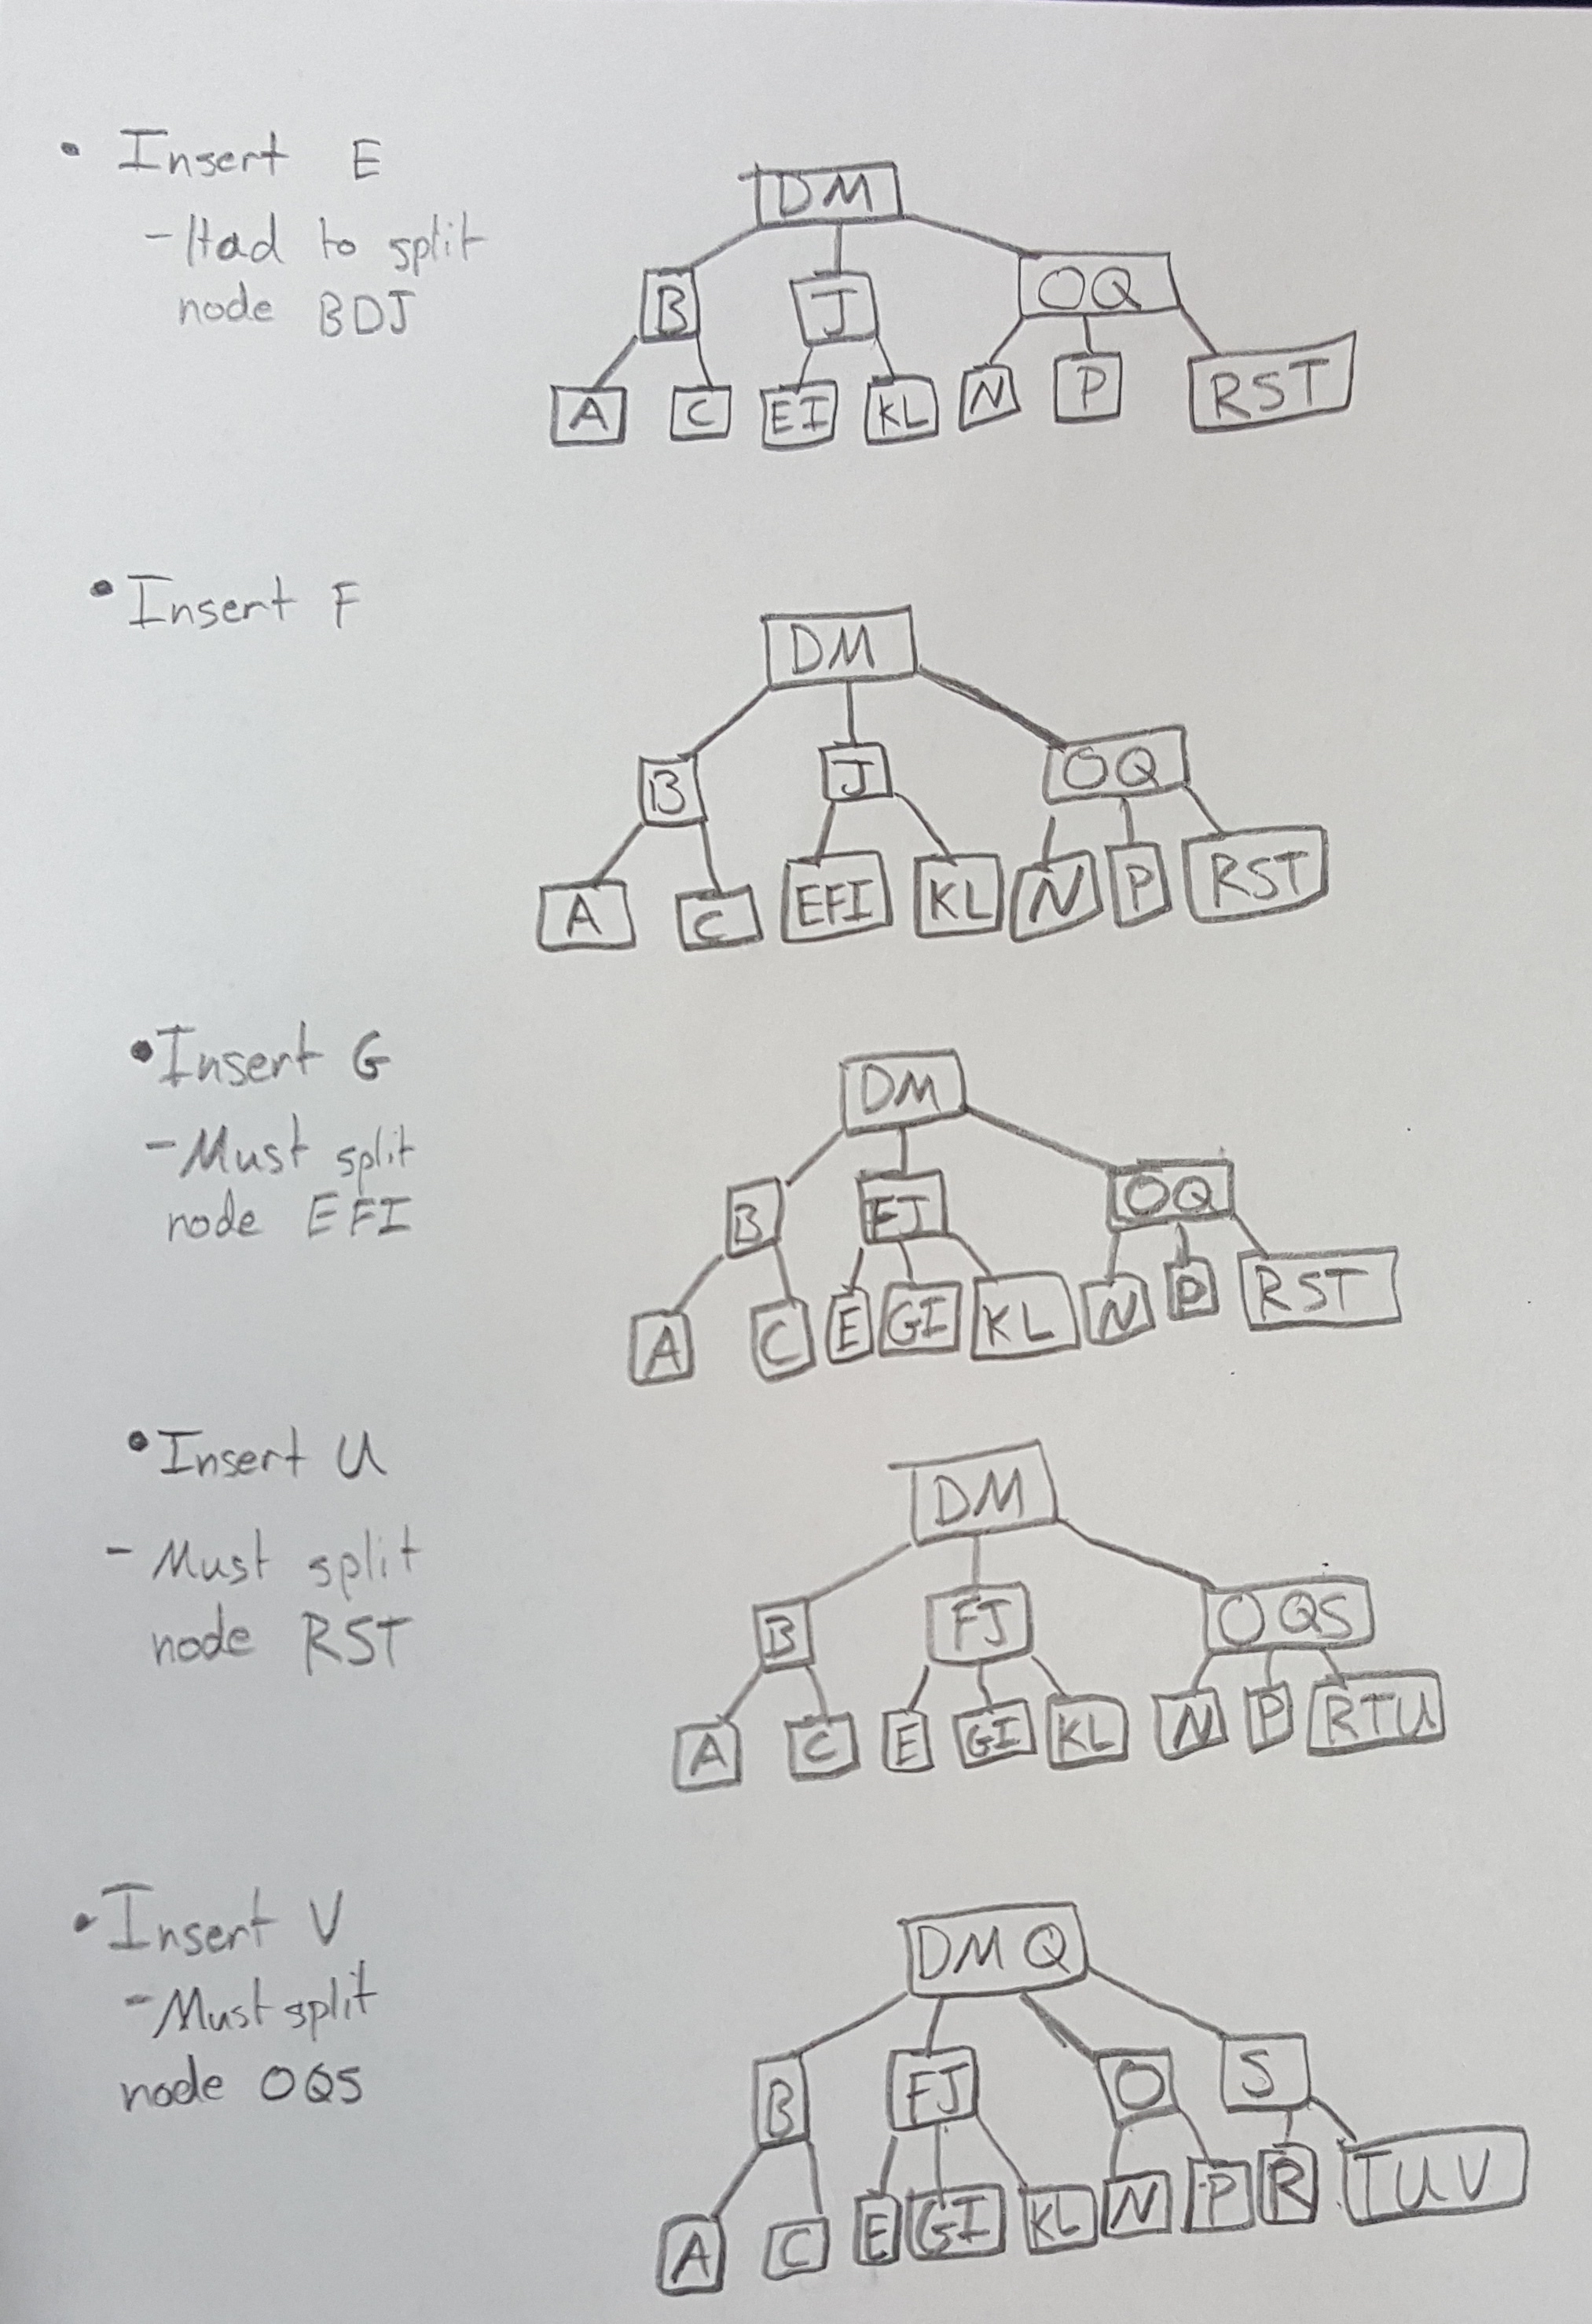 • Insert E
- Had to split
node BDJ
DM
B J OQ
A C EI KL N P RST
• Insert F
DM
B J OQ
A C EFI KL N P RST
• Insert G
- Must split
node EFI
DM
B FJ OQ
A C E GI KL N P RST
• Insert U
- Must split
node RST
DM
B FJ OQS
A C E GI KL N P RTU
• Insert V
- Must split
node OQS
DMQ
B FJ O S
A C E GI KL N P R TUV